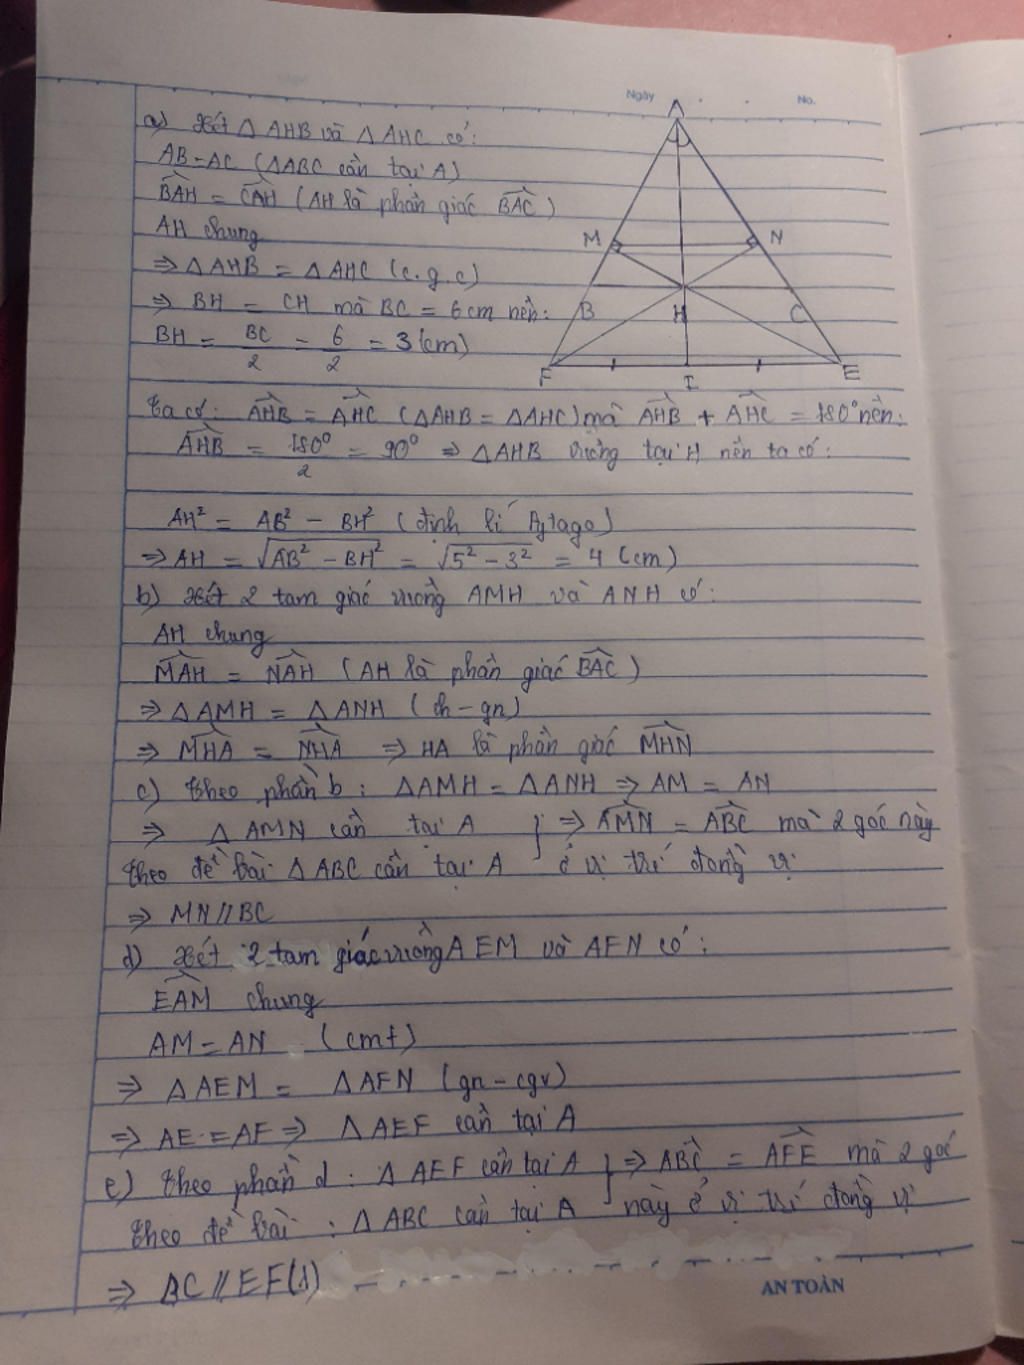 Ngày No.
A
a) Xét △ AHB và △ AHC có:
AB = AC (△ABC cân tại A)
BAH = CAH (AH là phân giác BAC)
AH chung
M N
⇒ △ AHB = △ AHC (c.g.c)
⇒ BH = CH mà BC = 6cm nên:
B H C
BH = BC/2 = 6/2 = 3 (cm)
F I E
Ta có: AHB = AHC (△AHB = △AHC) mà AHB + AHC = 180° nên:
AHB = 180°/2 = 90° ⇒ △AHB vuông tại H nên ta có:
AH² = AB² - BH² (định lí Pytago)
⇒ AH = √AB² - BH² = √5² - 3² = 4 (cm)
b) Xét 2 tam giác vuông AMH và ANH có:
AH chung
MAH = NAH (AH là phân giác BAC)
⇒ △AMH = △ANH (ch - gn)
⇒ MHA = NHA ⇒ HA là phân giác MHN
c) Theo phần b: △AMH = △ANH ⇒ AM = AN
⇒ △ AMN cân tại A } ⇒ AMN = ABC mà 2 góc này
Theo đề bài △ ABC cân tại A ở vị trí đồng vị
⇒ MN // BC
d) Xét 2 tam giác vuông AEM và AFN có:
EAM chung
AM = AN (cmt)
⇒ △AEM = △AFN (gn - cgv)
⇒ AE = AF ⇒ △AEF cân tại A
e) Theo phần d: △ AEF cân tại A } ⇒ ABC = AFE mà 2 góc
Theo đề bài: △ ABC cân tại A này ở vị trí đồng vị
⇒ BC // EF (1)
AN TOÀN